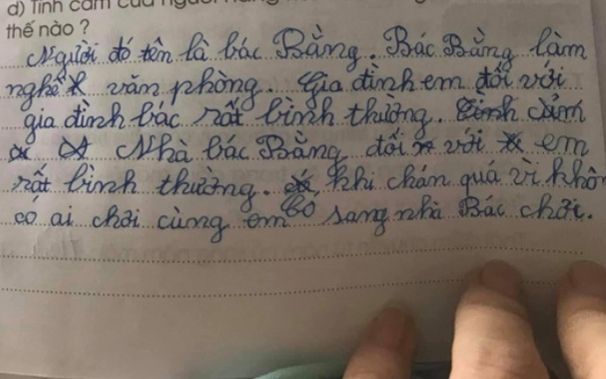 d) Tình cảm của người hàng
thế nào ?
Người đó tên là bác Bằng. Bác Bằng làm
nghề văn phòng. Gia đình em đối với
gia đình bác rất bình thường. cảm
Nhà bác Bằng đối với em
rất bình thường. khi chán quá vì khôn
có ai chơi cùng em bố sang nhà Bác chơi.